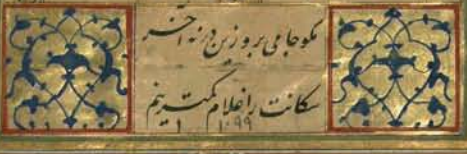 مکو جامی برو زین در نه آخر
سکانت را غلام کمترینم